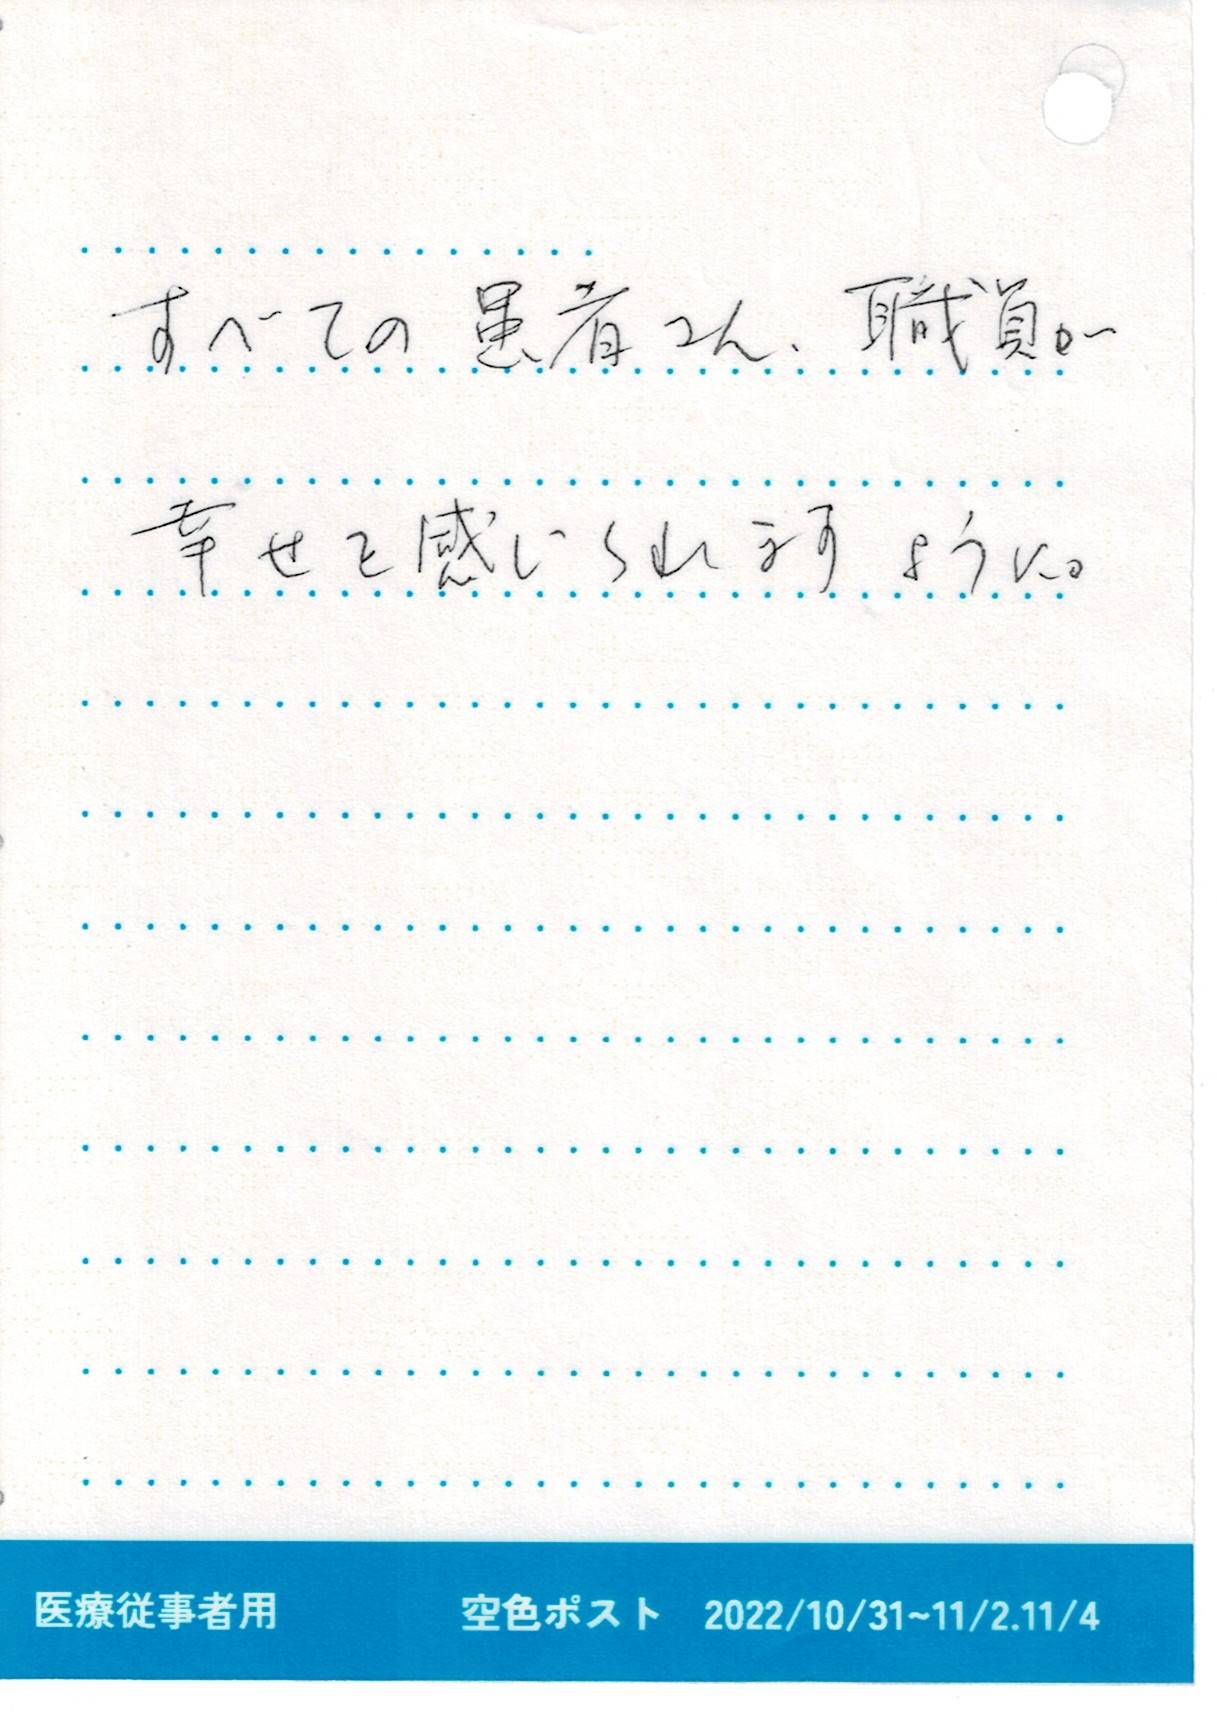 すべての患者さん、職員が
幸せを感じられますように。
医療従事者用 空色ポスト 2022/10/31~11/2.11/4